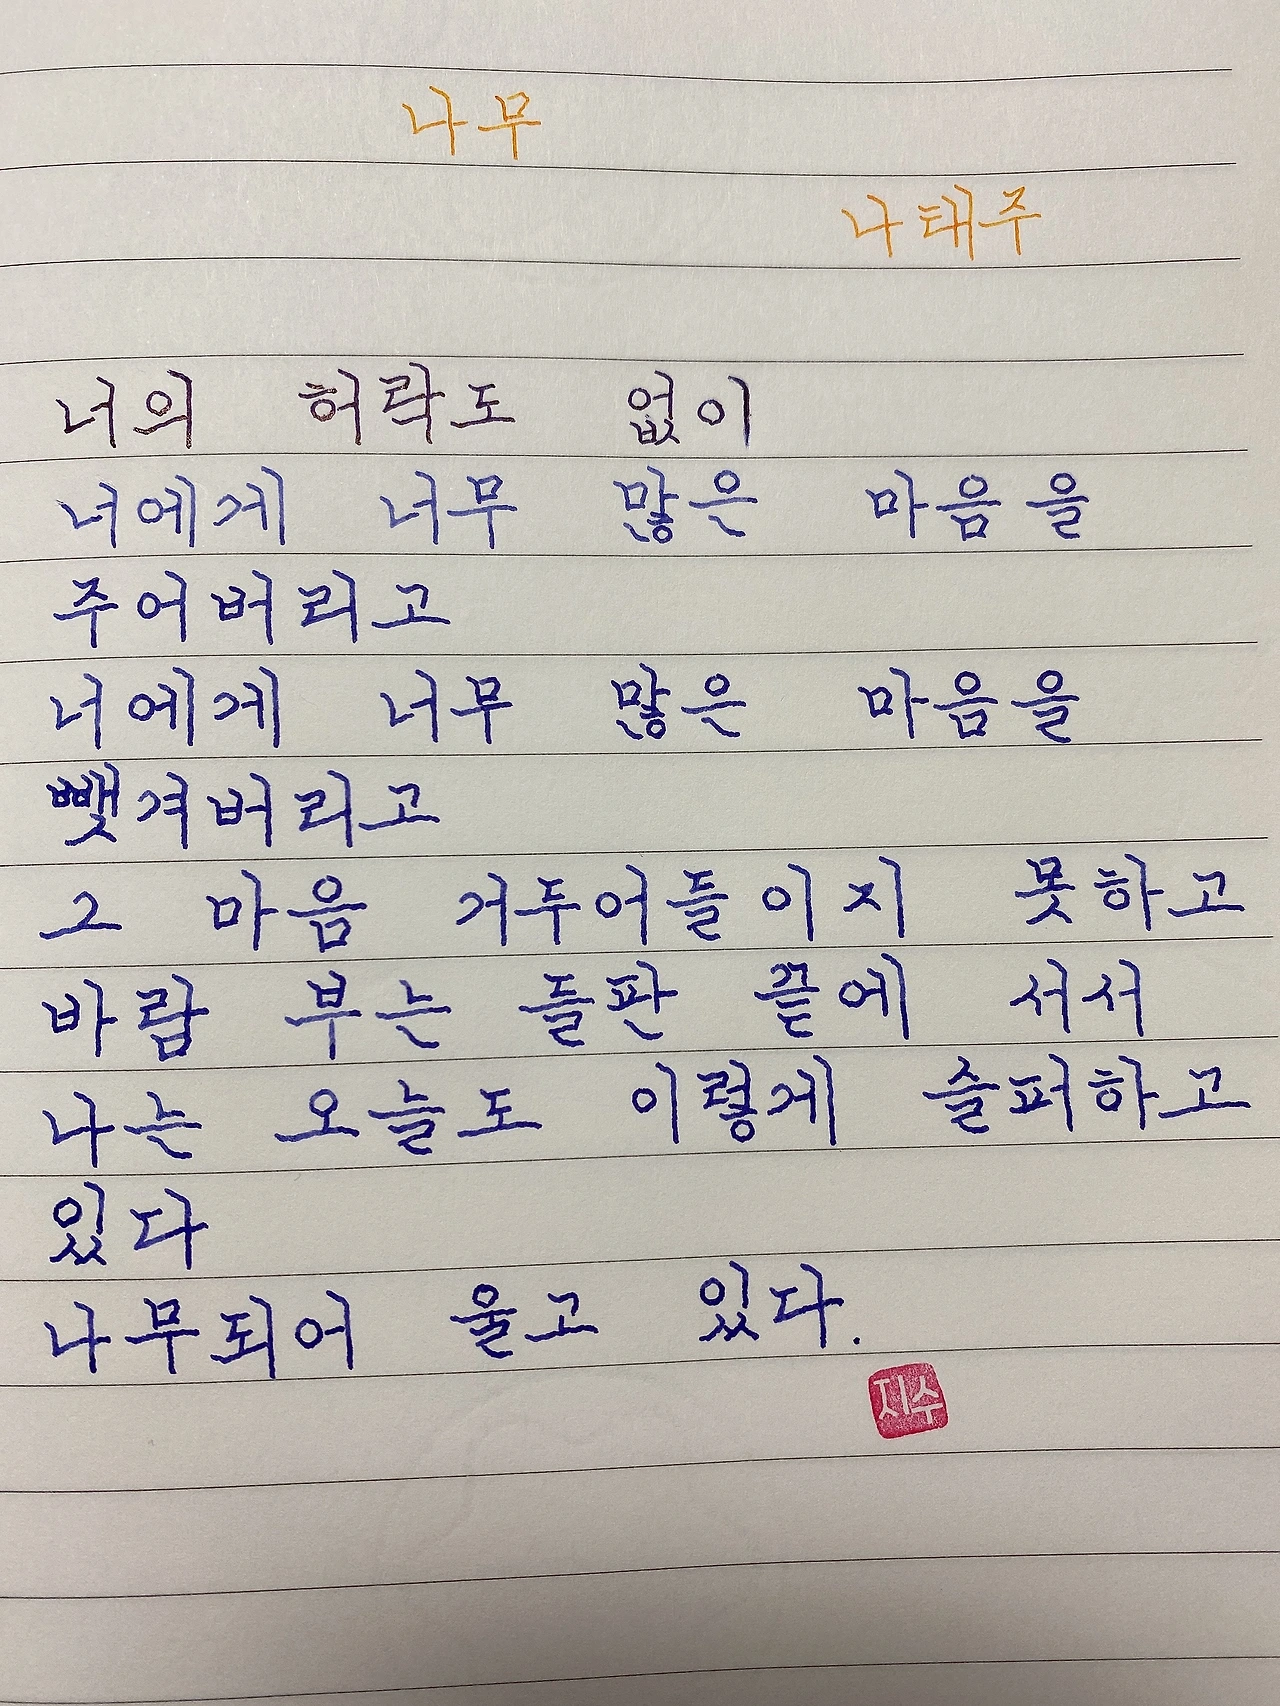 나무
나태주
너의 허락도 없이
너에게 너무 많은 마음을
주어버리고
너에게 너무 많은 마음을
뺏겨버리고
그 마음 거두어들이지 못하고
바람 부는 들판 끝에 서서
나는 오늘도 이렇게 슬퍼하고
있다
나무되어 울고 있다.
지수